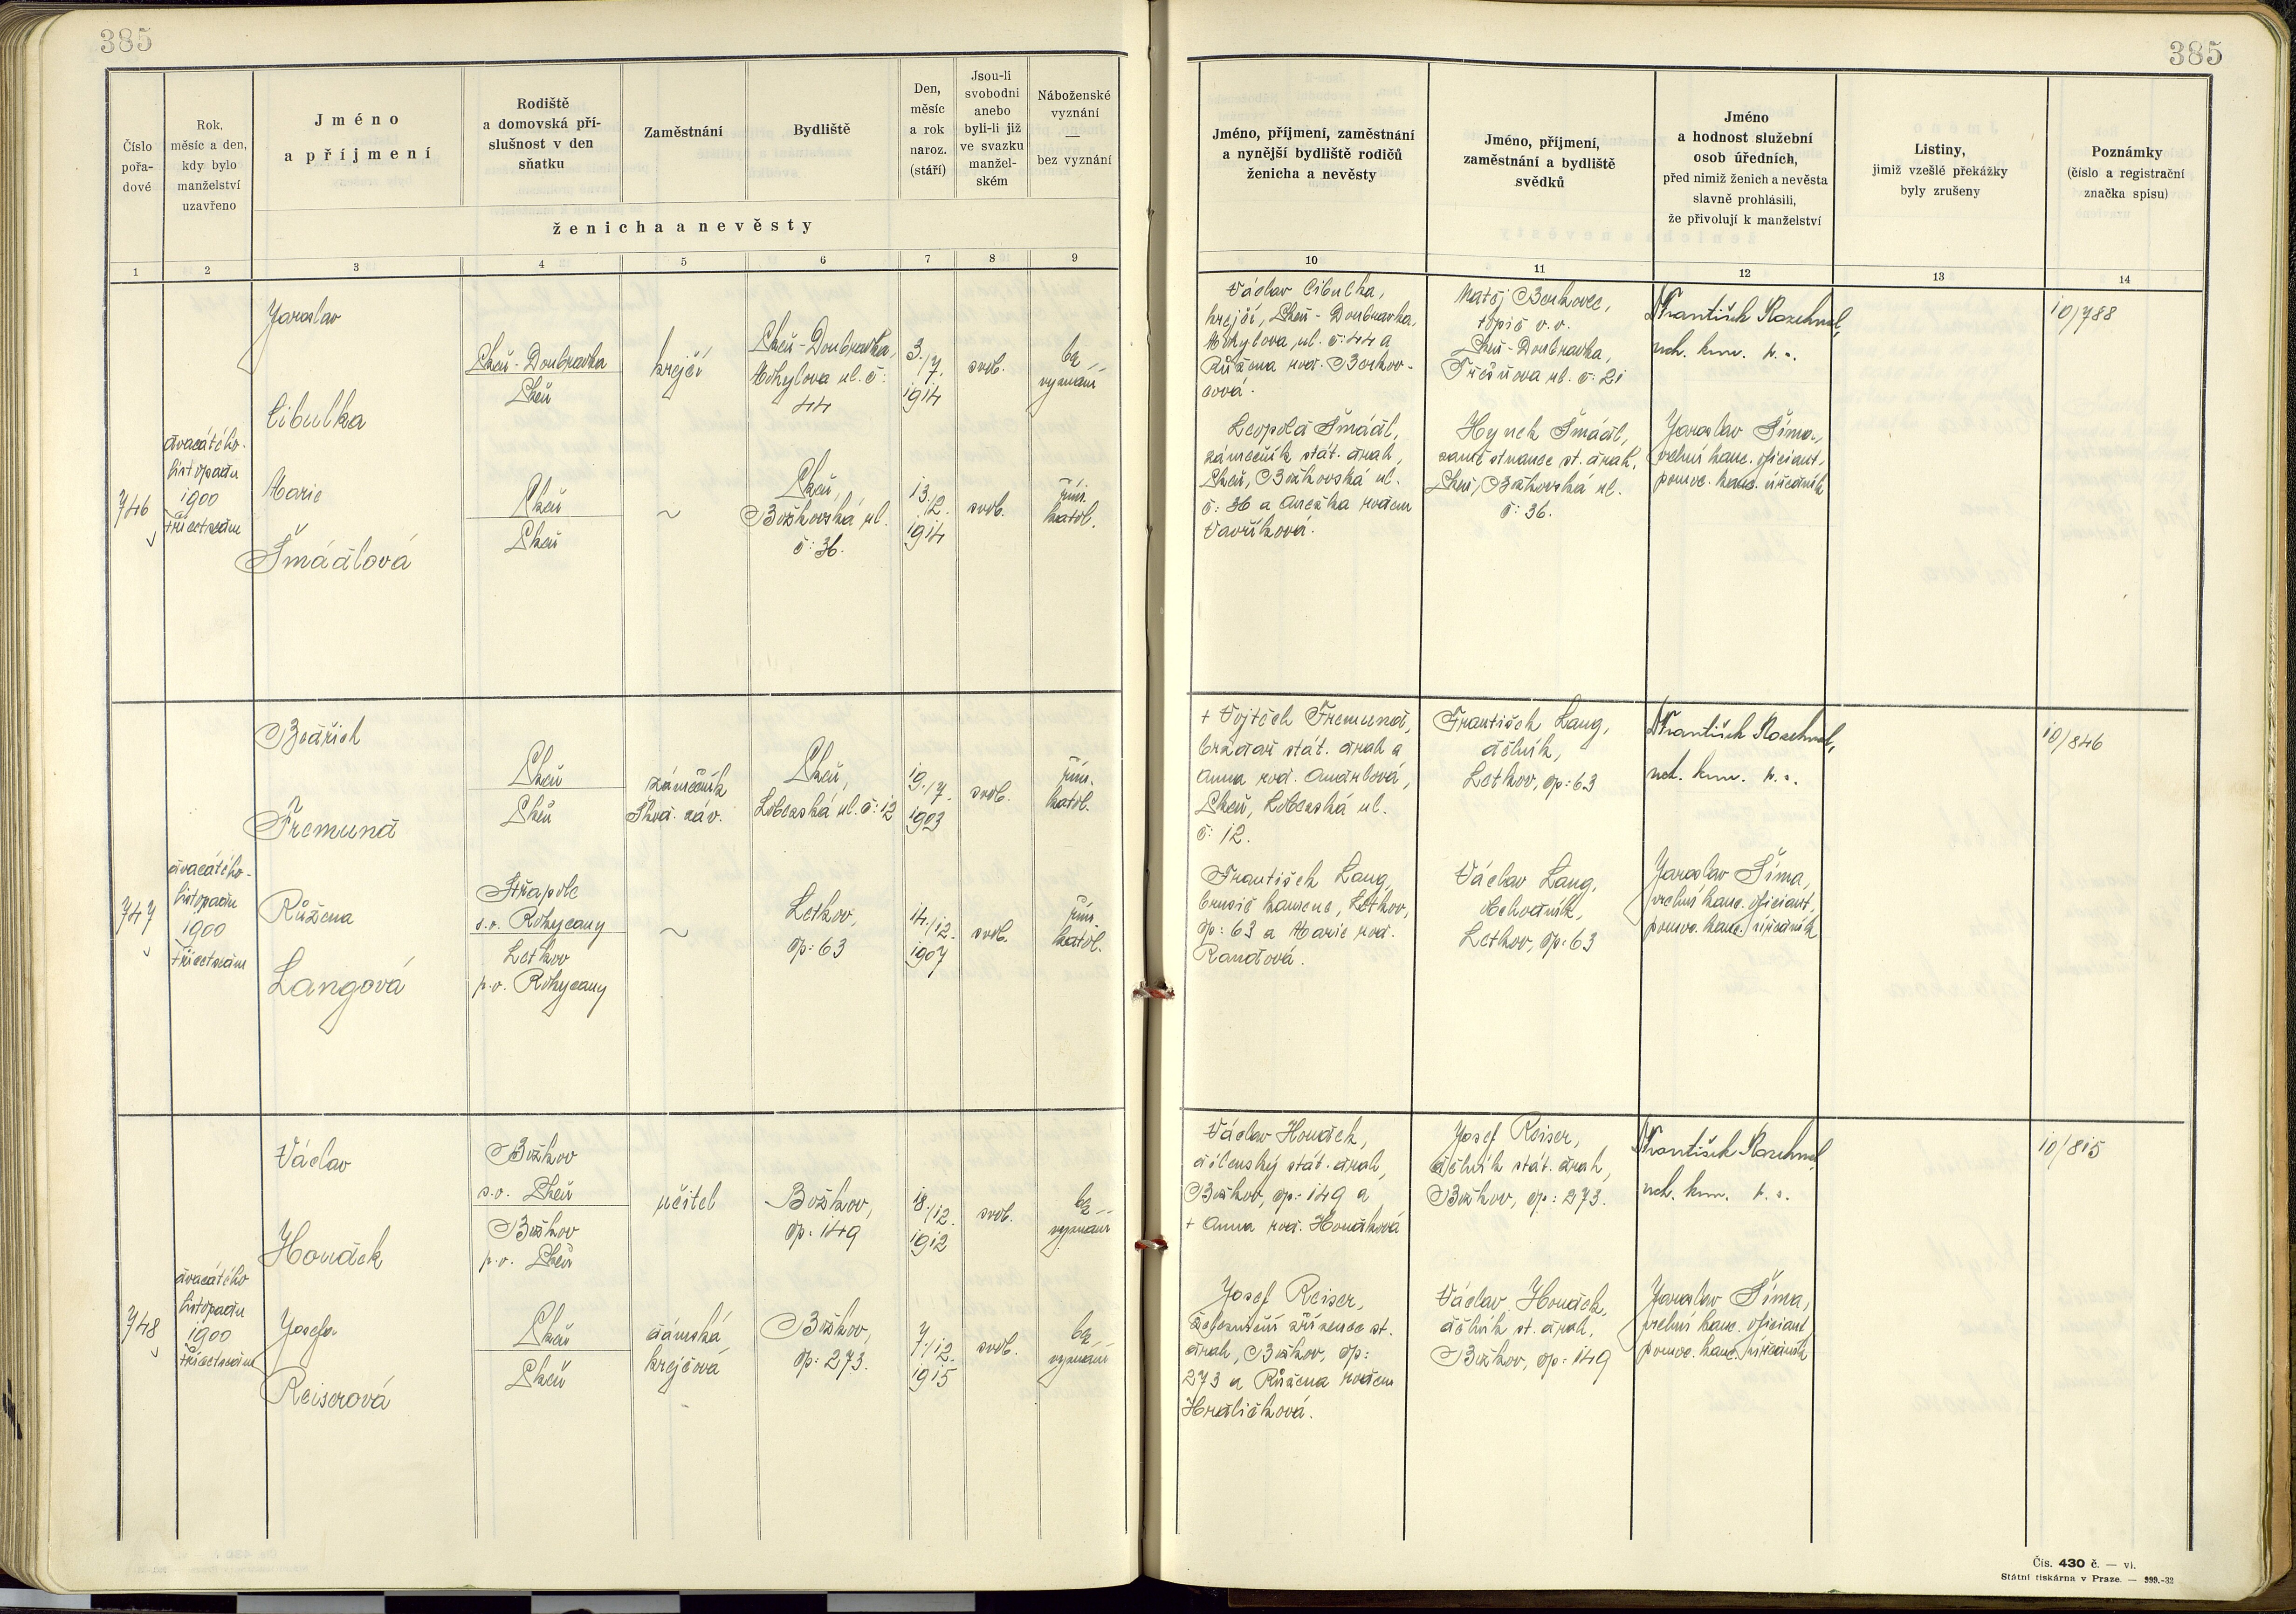 385
385
Číslo pořadové
Rok, měsíc a den, kdy bylo manželství uzavřeno
Jméno a příjmení
Rodiště a domovská příslušnost v den sňatku
Zaměstnání
Bydliště
Den, měsíc a rok naroz. (stáří)
Jsou-li svobodni anebo byli-li již ve svazku manželském
Náboženské vyznání — bez vyznání
ženicha a nevěsty
Jméno, příjmení, zaměstnání a nynější bydliště rodičů ženicha a nevěsty
Jméno, příjmení, zaměstnání a bydliště svědků
Jméno a hodnost služební osob úředních, před nimiž ženich a nevěsta slavně prohlásili, že přivolují k manželství
Listiny, jimiž vzešlé překážky byly zrušeny
Poznámky (číslo a registrační značka spisu)
1 2 3 4 5 6 7 8 9 10 11 12 13 14
746
dvacátého
listopadu
1900
třicetsedm
Jaroslav
Cibulka
Plzeň-Doubravka
Plzeň
krejčí
Plzeň-Doubravka,
Mohylova ul. č:
44
3./7.
1914
svob.
bez
vyznání
Marie
Šmádlová
Plzeň
Plzeň
~
Plzeň,
Božkovská ul.
č: 36.
13./12.
1914
svob.
řím.
katol.
Václav Cibulka,
krejčí, Plzeň-Doubravka,
Mohylova ul. č: 44 a
Růžena roz. Berkov-
cová.
Leopold Šmádl,
zámečník stát. drah,
Plzeň, Božkovská ul.
č: 36 a Anežka rozem
Vavříková.
Matěj Berkovec,
topič v. v.
Plzeň-Doubravka,
Třešňova ul. č: 21
Hynek Šmádl,
zaměstnanec st. drah,
Plzeň, Božkovská ul.
č: 36.
František Rozehnal,
Jaroslav Šíma,
vrchní kanc. oficiant,
pomoc. kanc. úředník
10/788
747
dvacátého
listopadu
1900
třicetsedm
Bedřich
Fremund
Plzeň
Plzeň
zámečník
Škod. záv.
Plzeň,
Lobezská ul. č: 12
19./7.
1903
svob.
řím.
katol.
Růžena
Langová
Střapole
s.o. Rokycany
Letkov
p.o. Rokycany
~
Letkov,
čp: 63
14./12.
1907
svob.
řím.
katol.
+ Vojtěch Fremund,
brzdař stát. drah a
Anna roz. Andrlová,
Plzeň, Lobezská ul.
č: 12.
František Lang,
brusič kamene, Letkov,
čp: 63 a Marie roz.
Randová.
František Lang,
dělník,
Letkov, čp: 63
Václav Lang,
obchodník,
Letkov, čp: 63
František Rozehnal,
Jaroslav Šíma,
vrchní kanc. oficiant,
pomoc. kanc. úředník
10/846
748
dvacátého
listopadu
1900
třicetsedm
Václav
Houdek
Božkov
s.o. Plzeň
Božkov
p.o. Plzeň
učitel
Božkov,
čp: 149
18./12.
1912
svob.
bez
vyznání
Josefa
Reiserová
Plzeň
Plzeň
dámská
krejčová
Božkov,
čp: 273.
7./12.
1915
svob.
bez
vyznání
Václav Houdek,
dílenský stát. drah,
Božkov, čp: 149 a
+ Anna roz. Houdková
Josef Reiser,
definitivní zřízenec st.
drah, Božkov, čp:
273 a Růžena rozem
Hrdličková.
Josef Reiser,
dělník stát. drah,
Božkov, čp: 273.
Václav Houdek,
dělník st. drah,
Božkov, čp: 149
František Rozehnal,
Jaroslav Šíma,
vrchní kanc. oficiant
pomoc. kanc. úředník
10/815
Čís. 430 č. — vi.
Státní tiskárna v Praze. — 999.-32